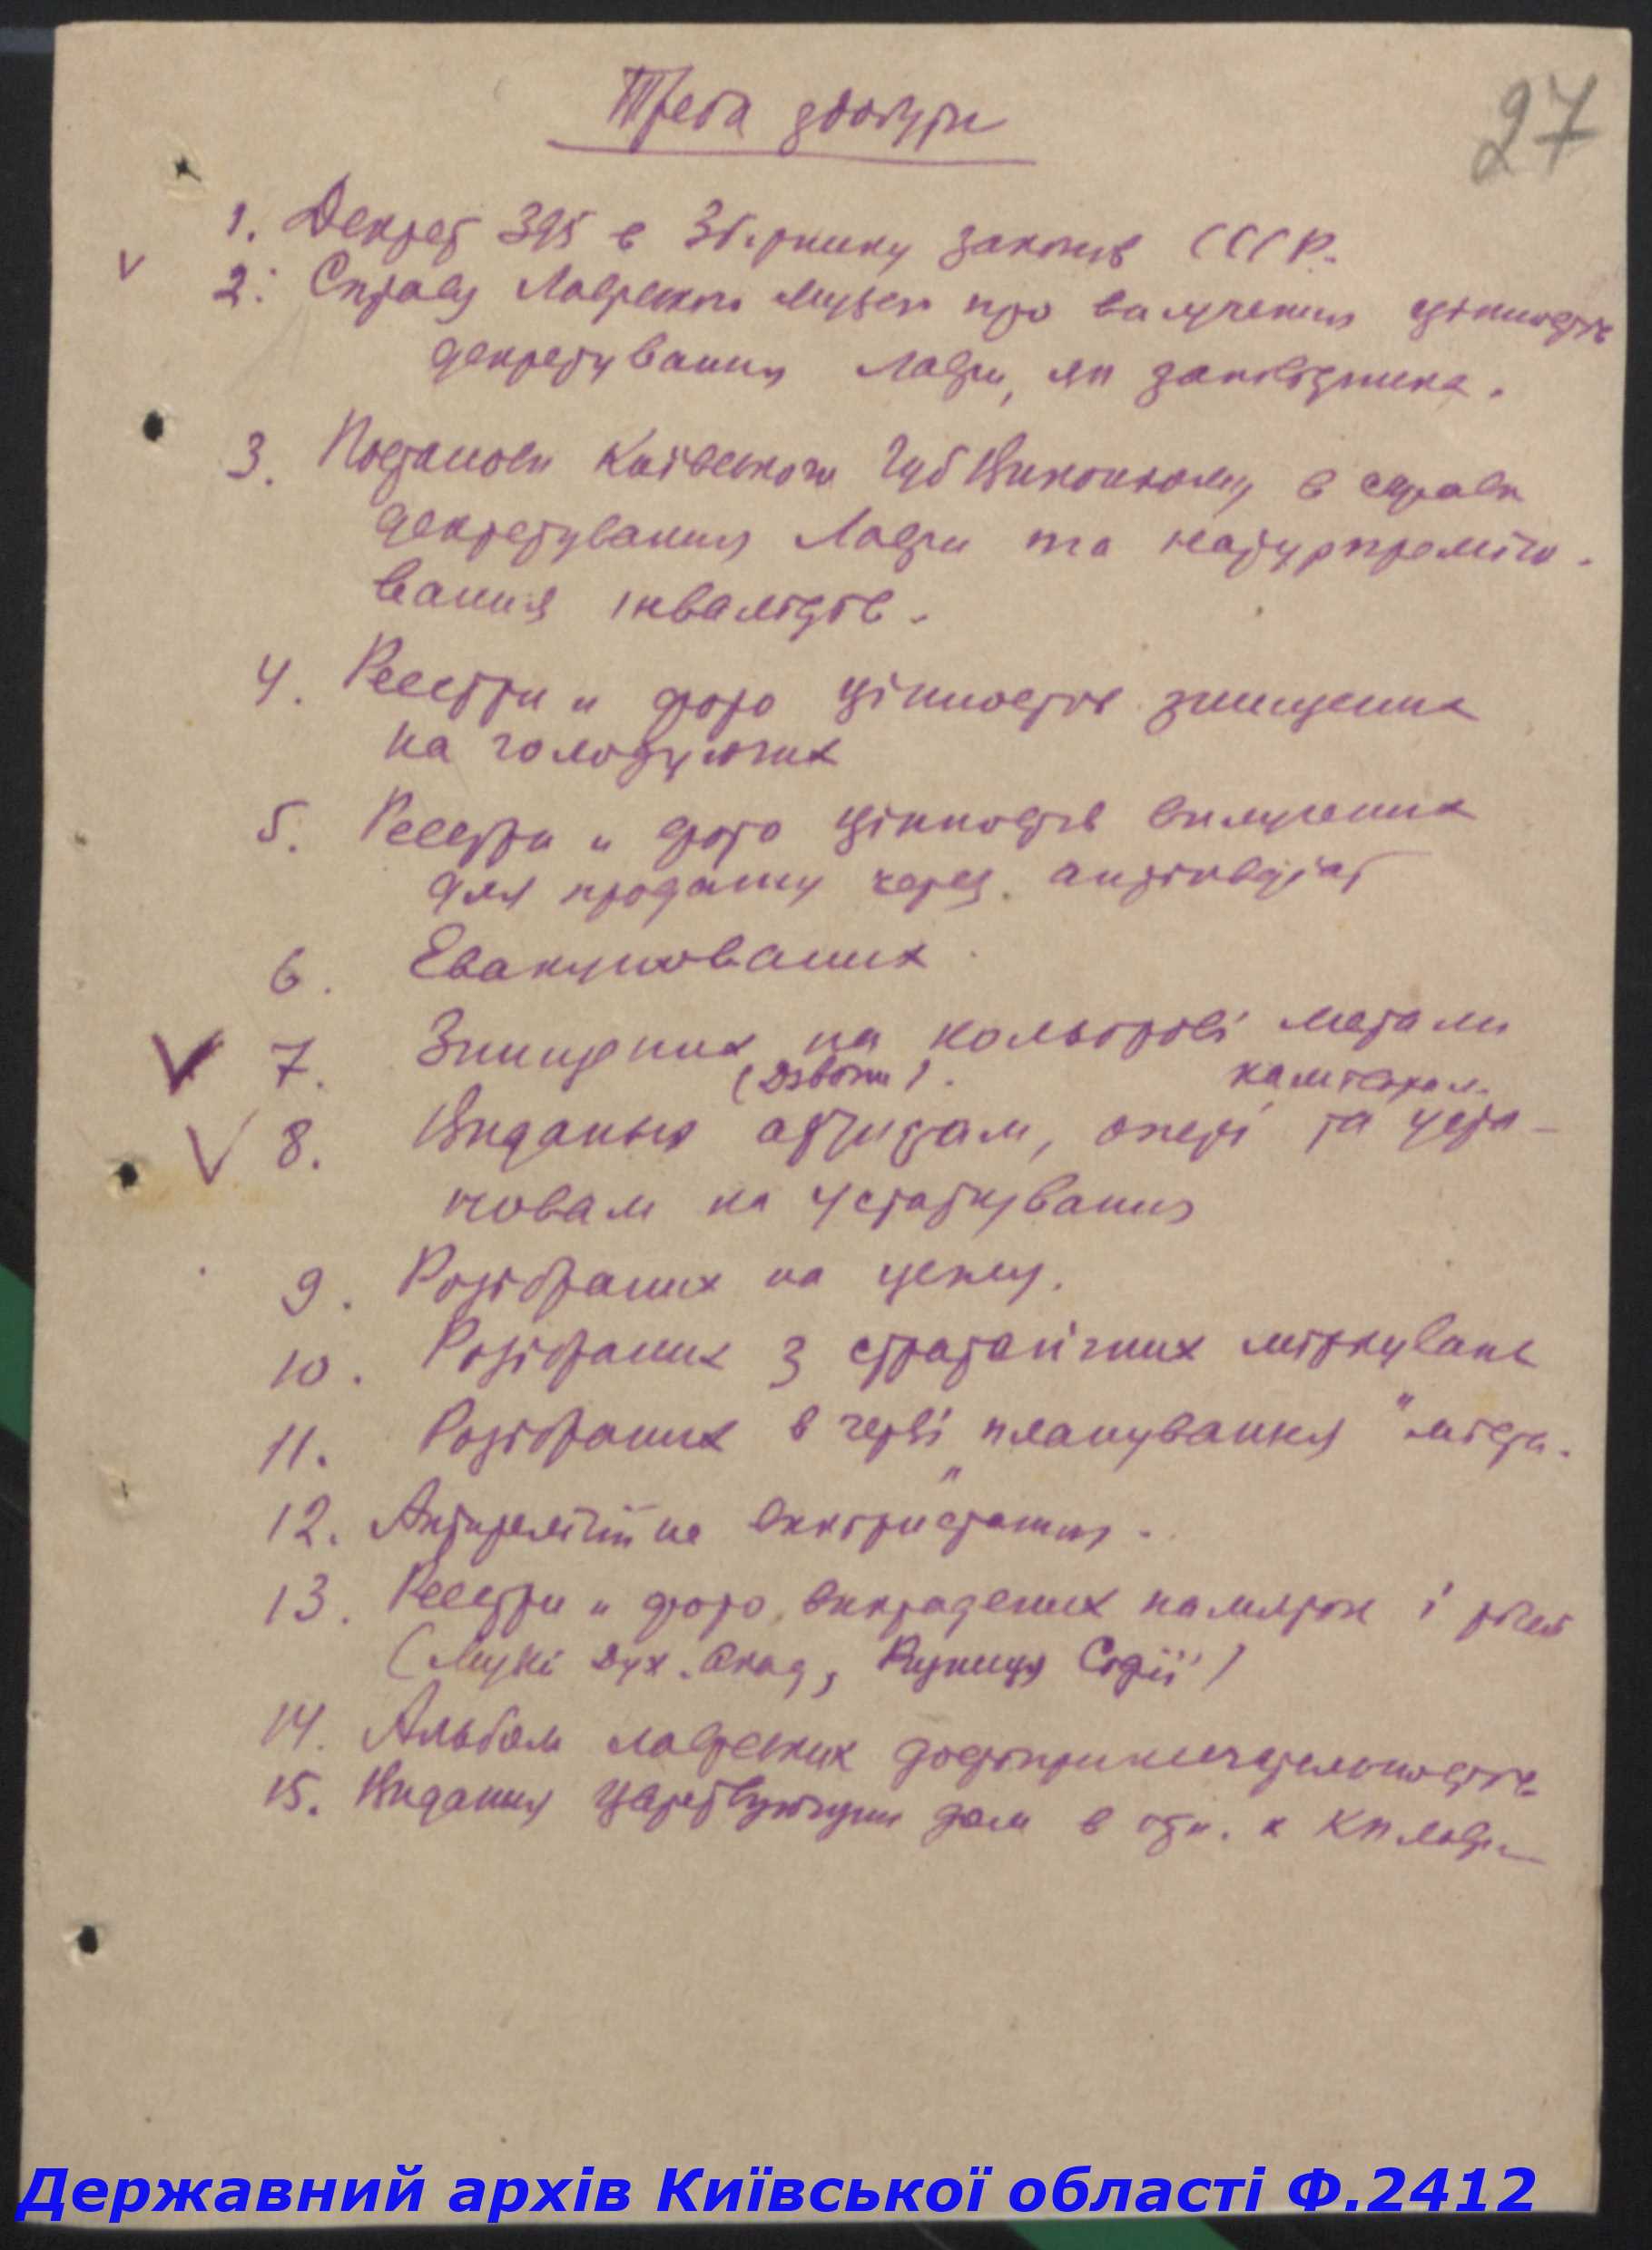 Треба здобути
27
1. Декрет 395 в Збірнику законів СССР.
v 2. Справу Лаврського музею про вилучення цінностів
декретування Лаври, як заповідника.
3. Постанови Київського ГубВиконкому в справі
декретування Лаври та
вання інвалідів.
4. Реєстри и фото цінностів знищених
на голодуючих
5. Реєстри и фото цінностів вилучених
для продажу через антікваріат
6. Евакуйованих
V 7. Знищених на кольорові метали
(Дзвони).
V 8. Виданих артистам, опері та уста-
новам на устаткування
9. Розібраних на цеглу.
10. Розібраних з стратегічних міркувань
11. Розібраних в черзі „планування" міста.
12. Антирелігійне використання.
13. Реєстри и фото викрадених памяток і речей
(Музеї Дух. Акад, Ризниця Софії)
14. Альбом лаврських достопримечательностів
15. Видання Царствующий дом в отн. к КП лавре
Державний архів Київської області Ф.2412